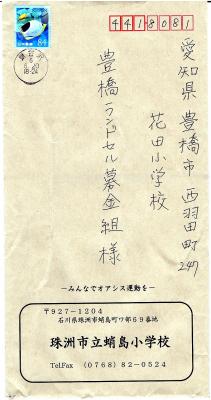 84
4418081
愛知県豊橋市西羽田町247
花田小学校
豊橋ランドセル募金組様
―みんなでオアシス運動を―
〒927-1204
石川県珠洲市蛸島町ワ部69番地
珠洲市立蛸島小学校
Tel.Fax (0768) 82-0524